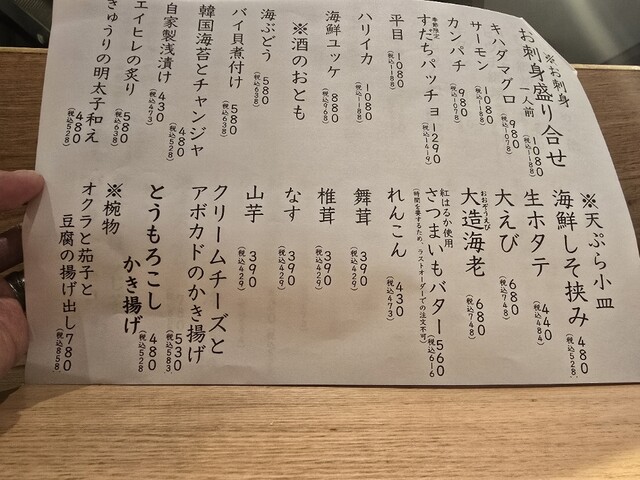 ※お刺身
お刺身盛り合せ
一人前 1080
(税込1188)
キハダマグロ 980
(税込1078)
サーモン 1080
(税込1188)
カンパチ 980
(税込1078)
季節限定
すだちパッチョ 1290
(税込1419)
平目 1080
(税込1188)
ハリイカ 1080
(税込1188)
海鮮ユッケ 880
(税込968)
※酒のおとも
海ぶどう 580
(税込638)
バイ貝煮付け 580
(税込638)
韓国海苔とチャンジャ 480
(税込528)
自家製浅漬け 430
(税込473)
エイヒレの炙り 580
(税込638)
きゅうりの明太子和え 480
(税込528)
※天ぷら小皿
海鮮しそ挟み 480
(税込528)
生ホタテ 440
(税込484)
大えび 680
(税込748)
おおぞうえび
大造海老 680
(税込748)
紅はるか使用
さつまいもバター 560
(税込616
(時間を要するため、ラストオーダーでの注文不可)
れんこん 430
(税込473)
舞茸 390
(税込429)
椎茸 390
(税込429)
なす 390
(税込429)
山芋 390
(税込429)
クリームチーズと
アボカドのかき揚げ 530
(税込583)
とうもろこし
かき揚げ 480
(税込528)
※椀物
オクラと茄子と
豆腐の揚げ出し 780
(税込858)